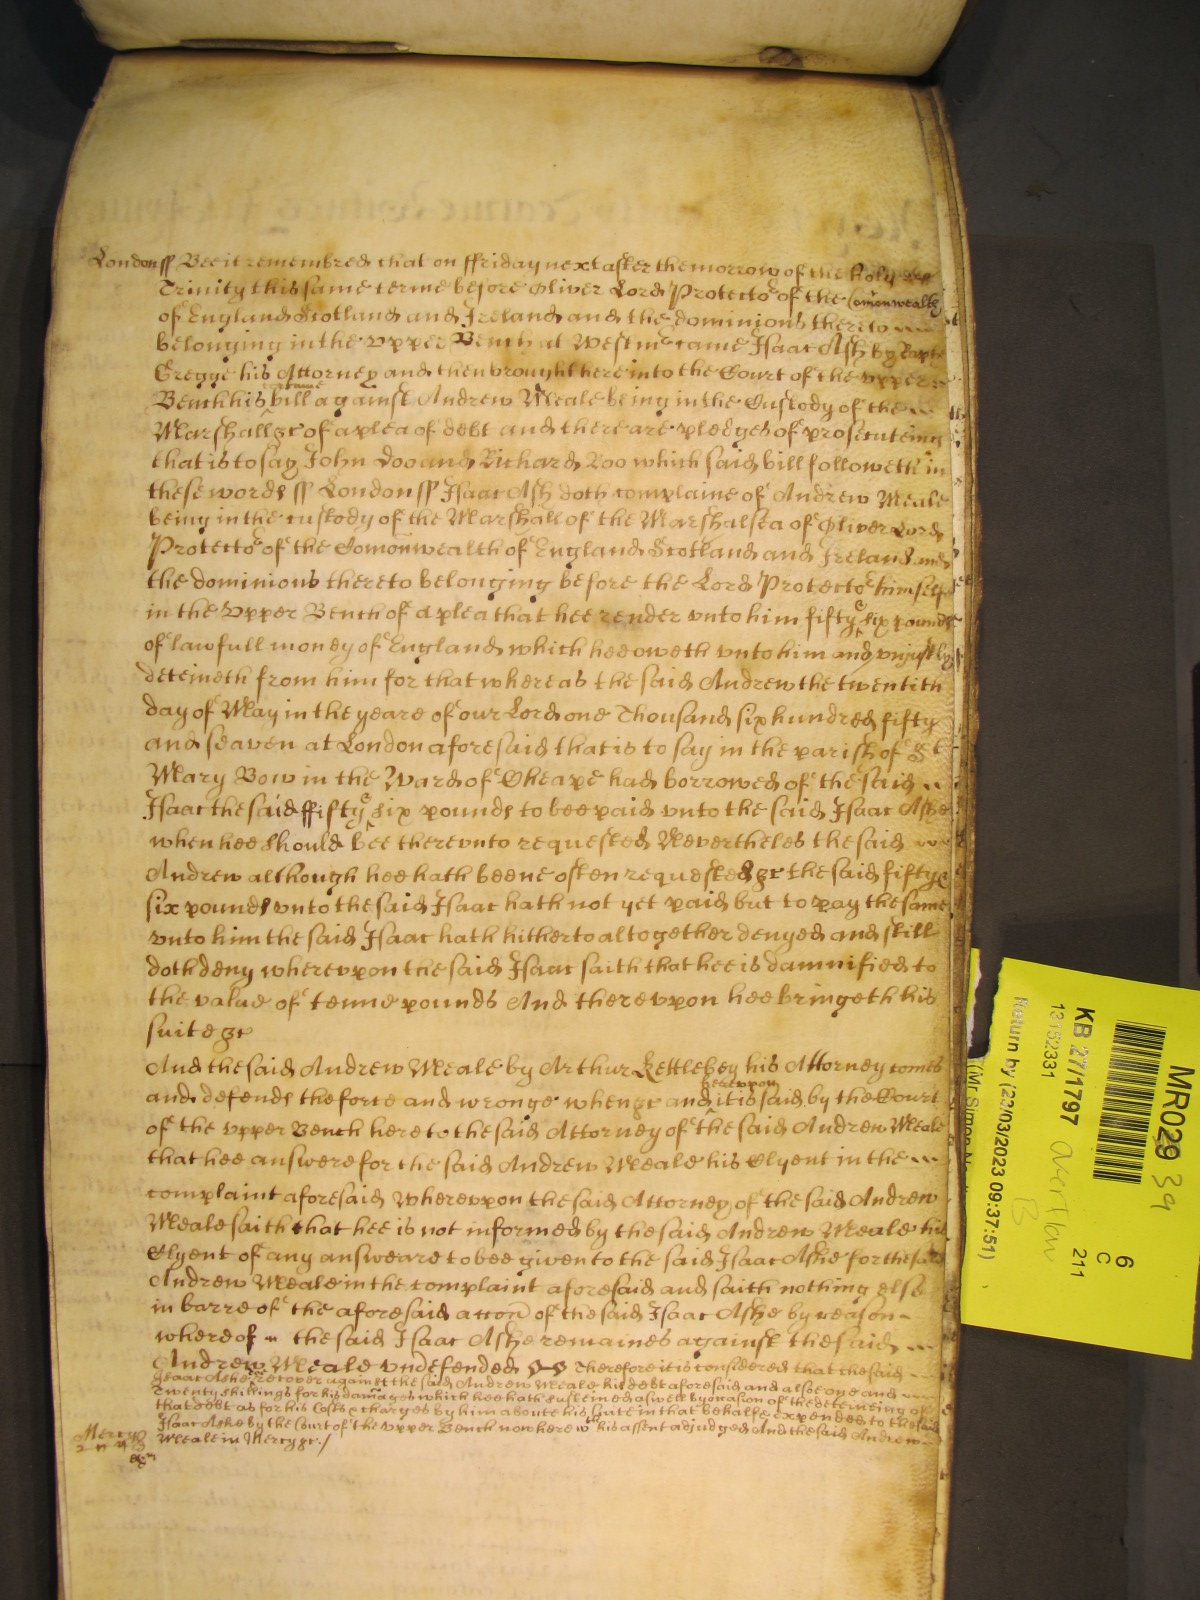 London ss Bee it remembred that on ffriday next after the morrow of the holy
Trinity this same terme before Oliver Lord Protector of the Comonwealth
of England Scotland and Ireland and the dominions thereto
belonging in the vpper Bench at Westmr came Isaac Ash by
Gregge his Attorney and then brought here into the Court of the vpper
certaine
Bench his bill against Andrew Meale being in the Custody of the
Marshall &c of a plea of debt and there are pledges of prosecuteing
that is to say John Doo and Richard Roo which said bill followeth in
these words ss London ss Isaac Ash doth complaine of Andrew Meale
being in the custody of the Marshall of the Marshalsea of Oliver Lord
Protector of the Comonwealth of England Scotland and Ireland and
the dominions thereto belonging before the Lord Protector himself
in the Vpper Bench of a plea that hee render vnto him fifty & six pounds
of lawfull money of England which hee oweth vnto him and vnjustly
deteineth from him for that whereas the said Andrew the twentith
day of May in the yeare of our Lord one Thousand six hundred fifty
and seaven at London aforesaid that is to say in the parish of St
Mary Bow in the Ward of Cheape had borrowed of the said
Isaac the said ffifty & six pounds to bee paid vnto the said Isaac Ashe
when hee should bee therevnto requested Nevertheles the said
Andrew although hee hath beene often requested &c the said fifty &
six pounds vnto the said Isaac hath not yet paid but to pay the same
vnto him the said Isaac hath hitherto altogether denyed and still
doth deny wherevpon the said Isaac saith that hee is damnified to
the value of tenne pounds And therevpon hee bringeth his
suite &c
And the said Andrew Meale by Arthur Kettlebey his Attorney comes
herevpon
and defends the force and wronge when &c and it is said by the Court
of the vpper Bench here to the said Attorney of the said Andrew Meale
that hee answere for the said Andrew Meale his Clyent in the
complaint aforesaid Wherevpon the said Attorney of the said Andrew
Meale saith that hee is not informed by the said Andrew Meale his
Clyent of any answeare to bee given to the said Isaac Ashe for the said
Andrew Meale in the complaint aforesaid and saith nothing else
in barre of the aforesaid accon of the said Isaac Ashe by reason
whereof the said Isaac Ashe remaines against the said
Andrew Meale vndefended Therefore it is considered that the said
Isaac Ashe recover against the said Andrew Meale his debt aforesaid and alsoe one and
Twenty shillings for his damages which hee hath susteined aswell by occasion of the deteineing of
that debt as for his Costs & charges by him aboute his suite in that behalfe expended to the said
Isaac Ashe by the Court of the vpper Bench now here wth his assent adjudged And the said Andrew
Mercy
Meale in Mercy &c /
MR029
39
6
C
211
KB 27/1797
13152331
Return by (23/03/2023 09:37:51)
B
(Mr Simon